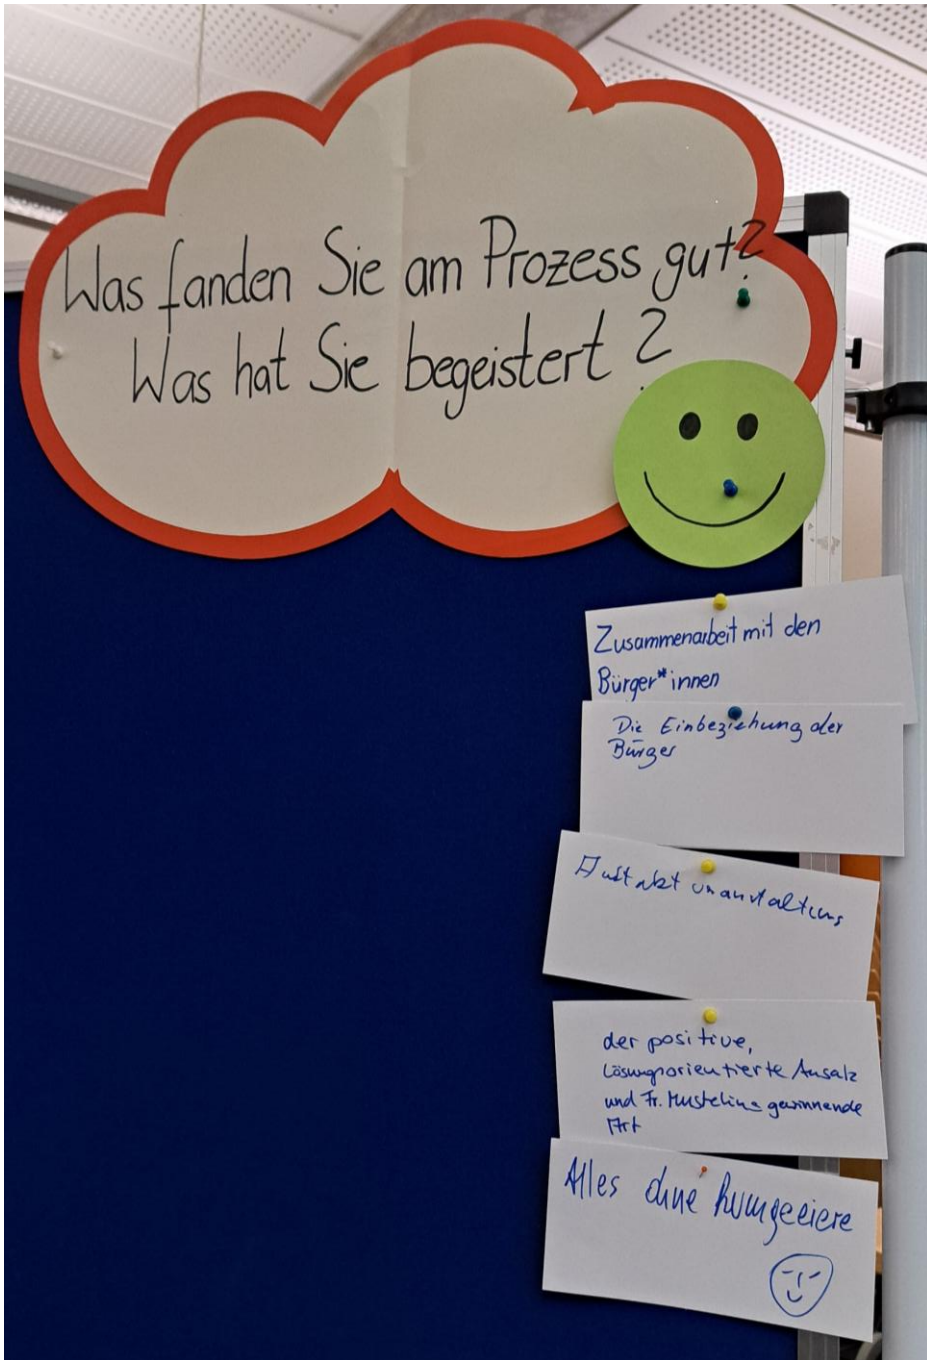 Was fanden Sie am Prozess gut?
Was hat Sie begeistert?
Zusammenarbeit mit den
Bürger*innen
Die Einbeziehung der
Bürger
der positive,
lösungsorientierte Ansatz
und Fr. gewinnende
Art
Alles ohne Rumgeeiere